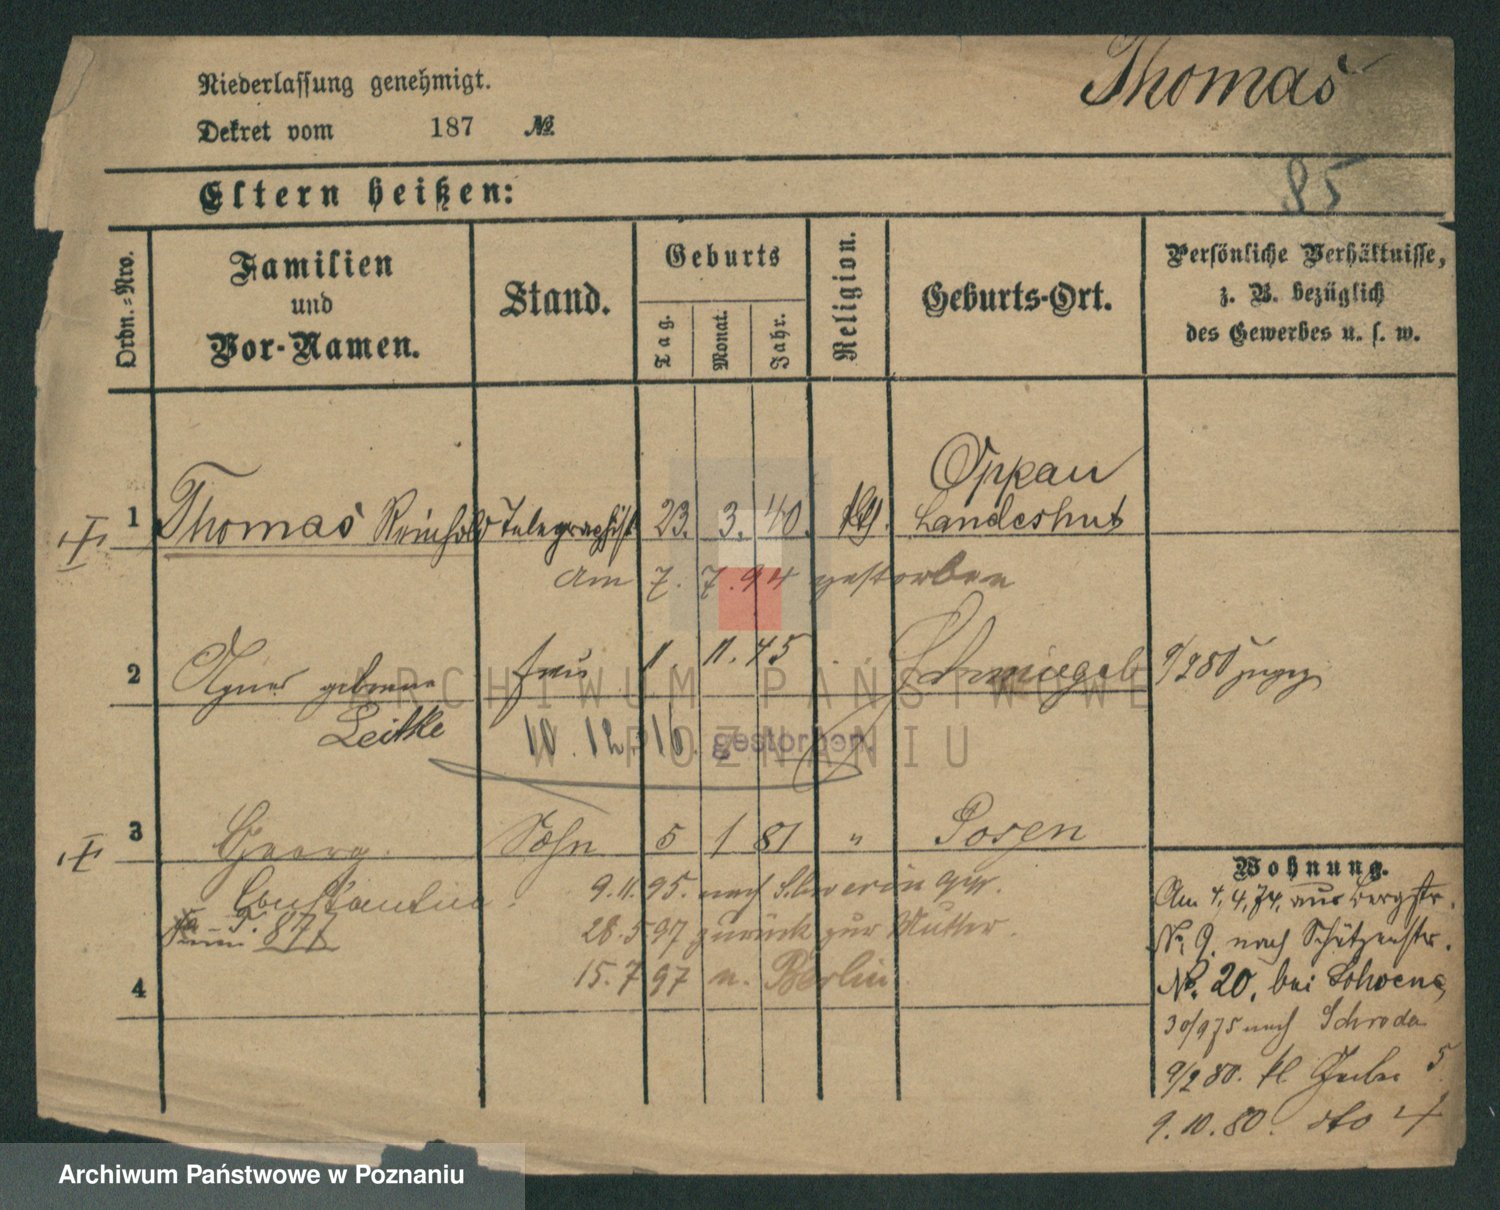 Niederlassung genehmigt.
Thomas
Dekret vom 187 №
85
Eltern heißen:
Ordn.=Nro.
Familien
und
Vor-Namen.
Stand.
Geburts
Tag.
Monat.
Jahr.
Religion.
Geburts-Ort.
Persönliche Verhältnisse,
z. B. bezüglich
des Gewerbes u. s. w.
Oppau
1 Thomas Reinhold Telegraphist 23. 3. 40. Landeshut
am 7. 7. 94 gestorben
2 Agnes geborene Frau 11. 75 Schmiegel 9/2 80
Leitke 10. 12. 16. gestorben.
3 Georg Sohn 5 1 81 " Posen
Constantin 9. 11. 95. nach Schwerin
T. 877 28. 5 97 zurück zur Mutter.
15. 7 97 n. Berlin
4
Wohnung.
Am 4, 4, 74, aus Bergstr.
No. 9. nach Schützenstr.
No. 20, bei
30/9 75 nach Schroda
9/2 80. kl. 5
9. 10. 80. dto 4
ARCHIWUM PAŃSTWOWE
W POZNANIU
Archiwum Państwowe w Poznaniu